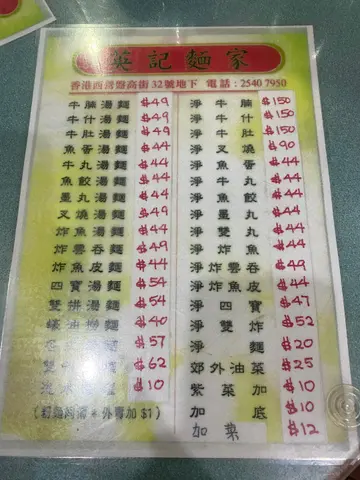 英記麵家
香港西營盤高街32號地下 電話：2540 7950
牛腩湯麵 $49
牛什湯麵 $49
牛肚湯麵 $49
魚蛋湯麵 $44
牛丸湯麵 $44
魚餃湯麵 $44
墨丸湯麵 $44
叉燒湯麵 $49
炸魚湯麵 $44
炸雲吞麵 $49
炸魚皮麵 $44
四寶湯麵 $54
雙拼湯麵 $54
油麵 $40
$57
$62
$10
外賣加$1)
淨牛腩 $150
淨牛什 $150
淨牛肚 $150
淨叉燒 $90
淨魚蛋 $44
淨牛丸 $44
淨魚餃 $44
淨墨丸 $44
淨雙丸 $44
淨炸魚 $49
淨炸雲吞 $44
淨炸魚皮 $44
淨四寶 $47
淨雙炸 $52
淨麵 $20
郊外油菜 $25
紫菜 $10
加底 $10
加菜 $12